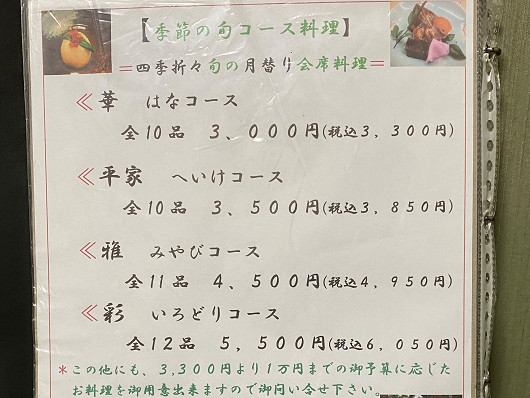 【季節の旬コース料理】
=四季折々旬の月替り会席料理=
≪華 はなコース
全10品 3、000円(税込3,300円)
≪平家 へいけコース
全10品 3、500円(税込3,850円)
≪雅 みやびコース
全11品 4、500円(税込4,950円)
≪彩 いろどりコース
全12品 5、500円(税込6,050円)
*この他にも、3,300円より1万円までの御予算に応じた
お料理を御用意出来ますので御問い合せ下さい。